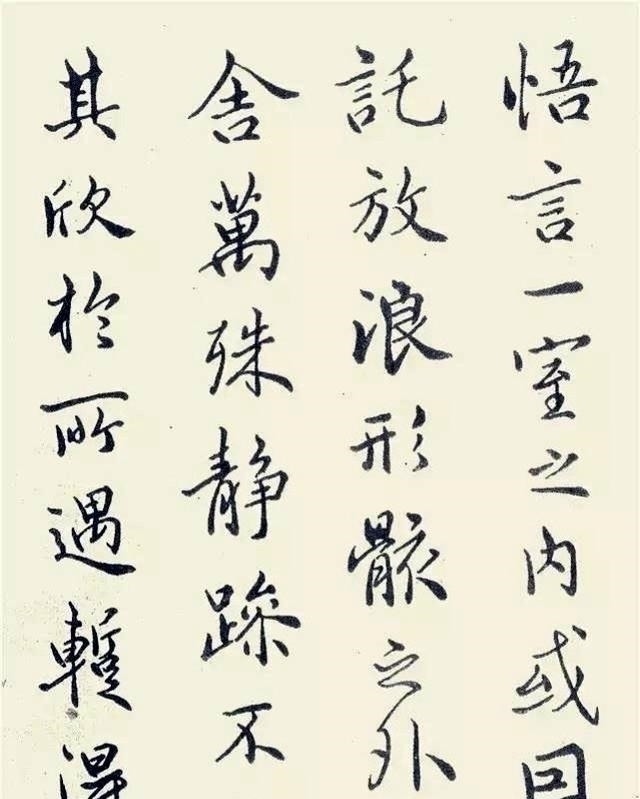 悟言一室之内或因
託放浪形骸之外
舍萬殊静躁不
其欣於所遇暫得